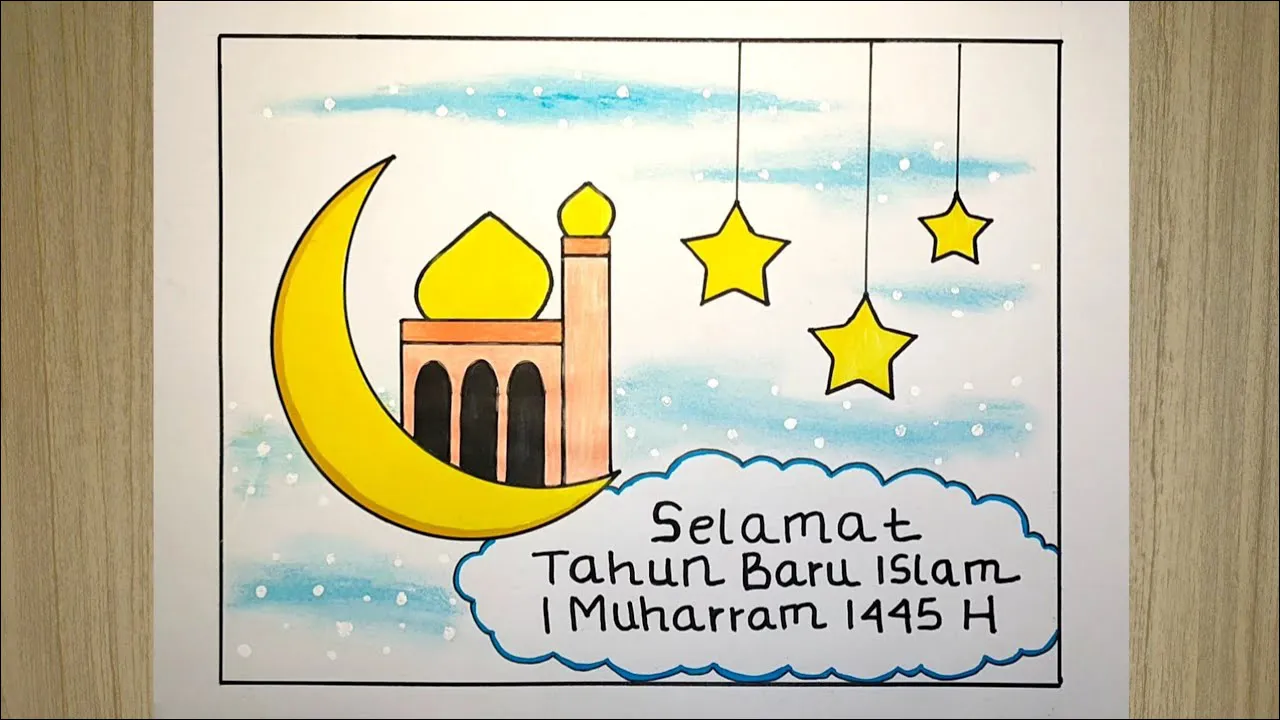 Selamat
Tahun Baru Islam
1 Muharram 1445 H